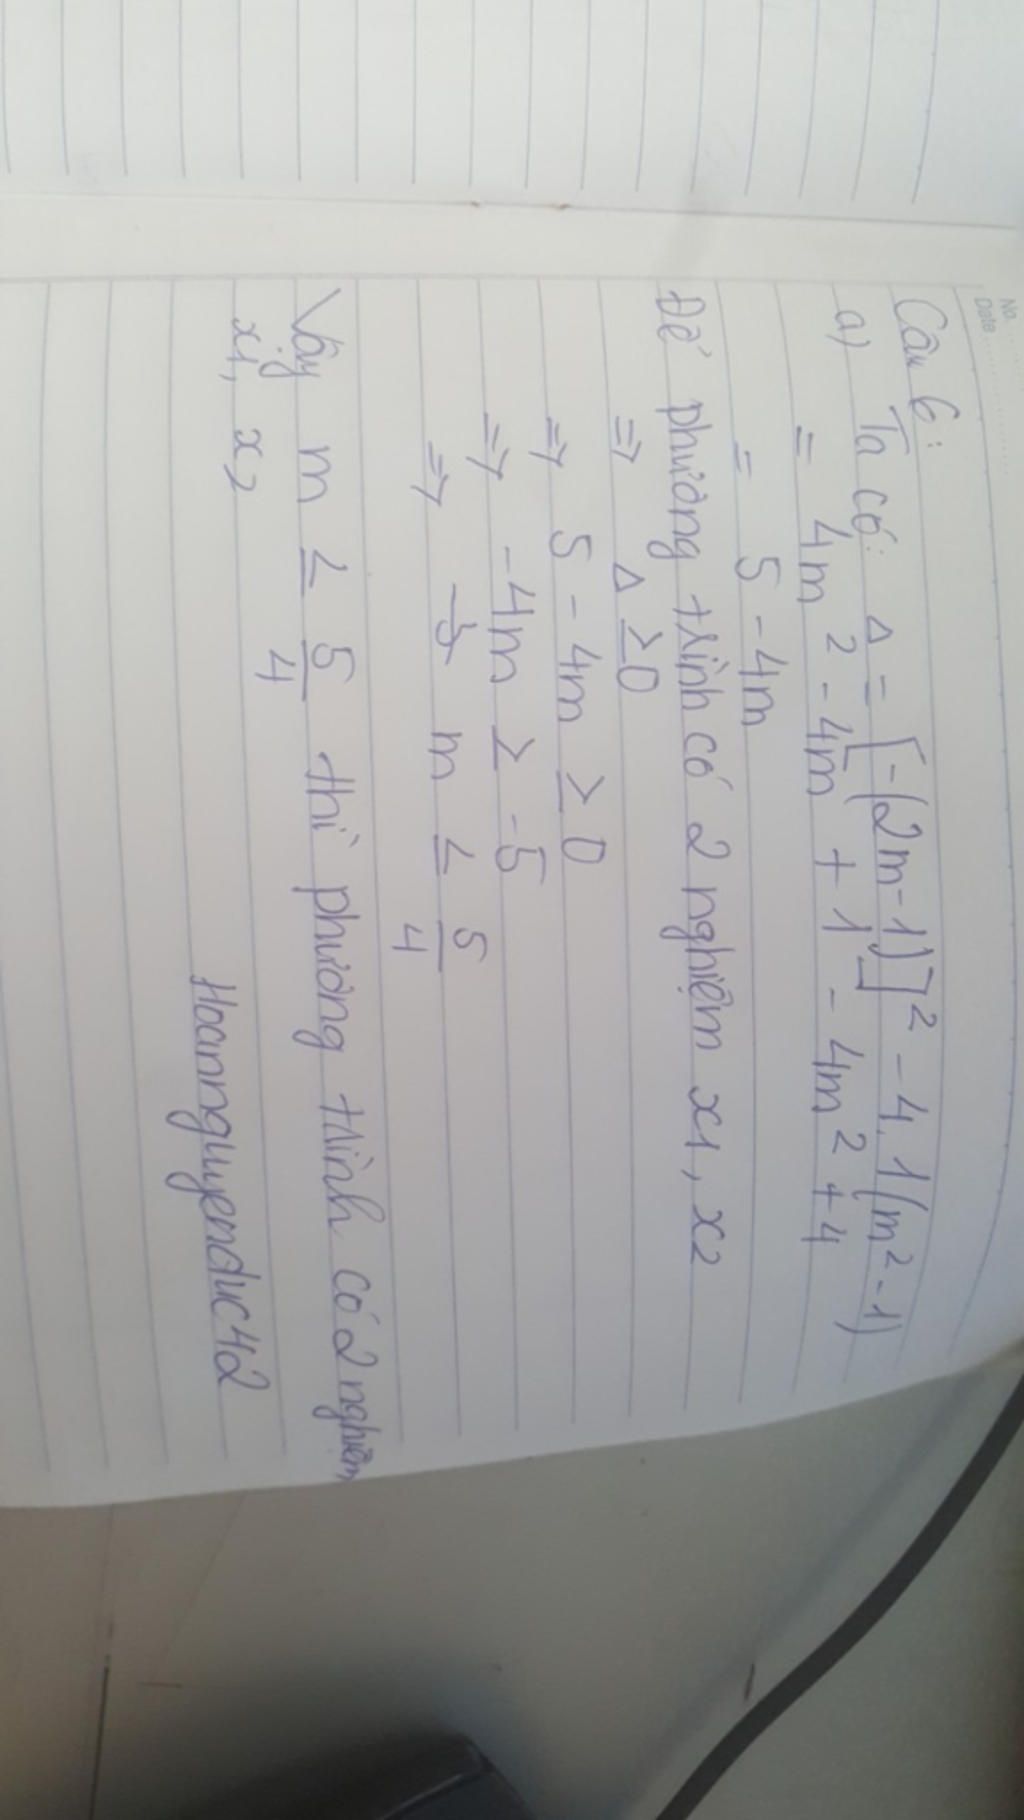 No.
Date
Câu 6:
a) Ta có: Δ = [-(2m-1)]² - 4.1(m²-1)
= 4m² - 4m + 1 - 4m² + 4
= 5 - 4m
Để phương trình có 2 nghiệm x1, x2
=> Δ ≥ 0
=> 5 - 4m ≥ 0
=> -4m ≥ -5
=> m ≤ 5/4
Vậy m ≤ 5/4 thì phương trình có 2 nghiệm
x1, x2
Hoannguyenduc42